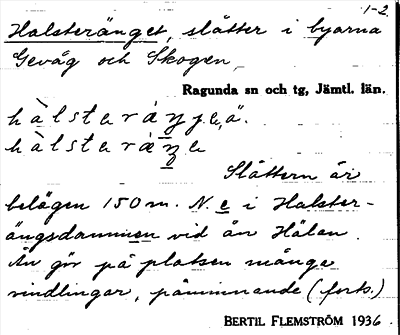 1-2.
Halsteränget, slåtter i byarna
Gevåg och Skogen,
Ragunda sn och tg, Jämtl. län.
Slåttern är
belägen 150 m. N. e i Halster-
ängsdammen vid ån Hälan.
Ån gör på platsen många
vindlingar, påminnande (forts.)
BERTIL FLEMSTRÖM 1936.